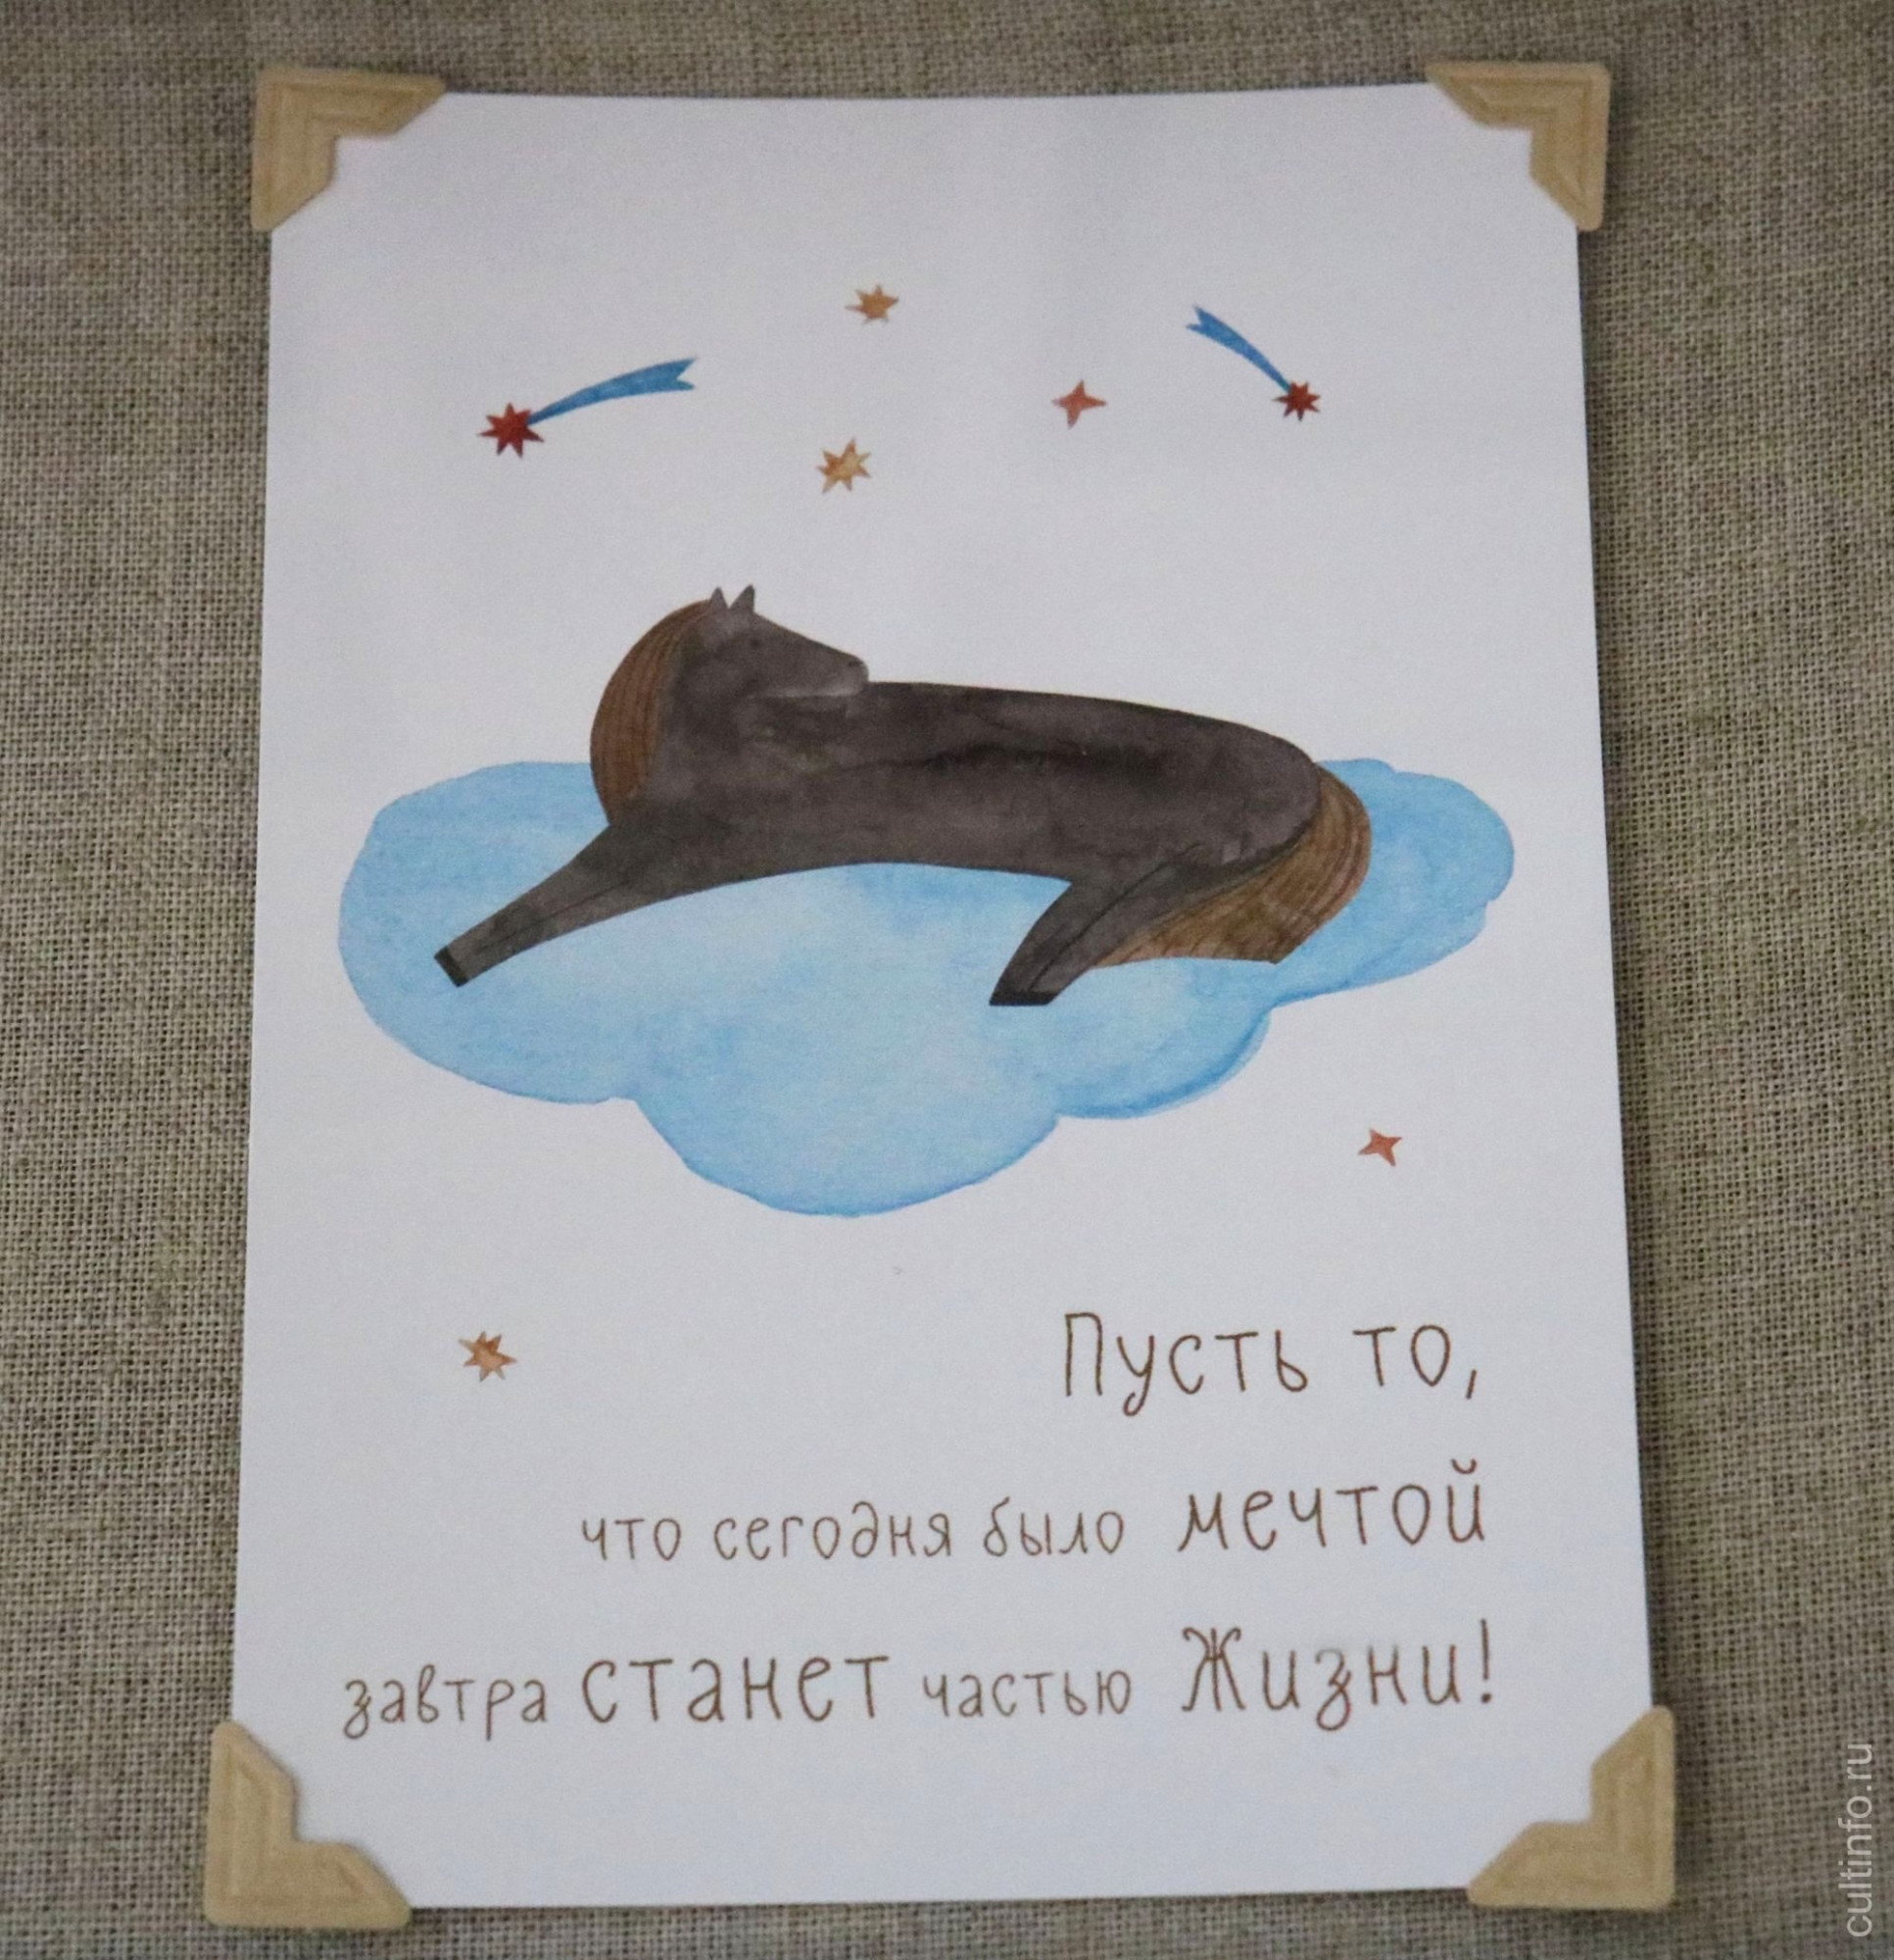 Пусть то,
что сегодня было мечтой
завтра станет частью Жизни!
cultinfo.ru